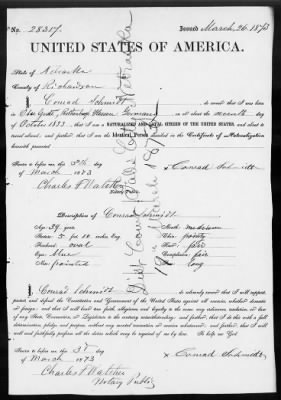 No. 28317. Issued March, 26. 1873
UNITED STATES OF AMERICA.
State of Nebraska
County of Richardson
I, Conrad Schmidt, do swear that I was born
in Hessen Germany on the seventh day
of October 1833; that I am a NATURALIZED AND LOYAL CITIZEN OF THE UNITED STATES, and about to
travel abroad; and further that I am the Identical Person described in the Certificate of Naturalization
herewith presented
Sworn to before me this 3rd
of March 1873
x Conrad Schmidt
Notary Public
Description of Conrad Schmidt
Age: 39 years
Stature: 5 feet 10 inches Eng.
Forehead: oval
Eyes: blue
Nose: pointed
Mouth: medium
Chin: pointy
Hair: fair
Complexion: fair
Face: long
I, Conrad Schmidt, do solemnly swear that I will support,
protect and defend the Constitution and Government of the United States against all enemies, whether domestic
or foreign; and that I will bear true faith, allegiance and loyalty to the same, any ordinance, resolution or law
of any State, Convention or Legislature to the contrary notwithstanding; and further, that I do this with a full
determination, pledge and purpose, without any mental reservation or evasion whatsoever; and further, that I will
well and faithfully perform all the duties which may be required of me by law. So help me God.
Sworn to before me this 3rd
of March 1873
x Conrad Schmidt
Notary Public